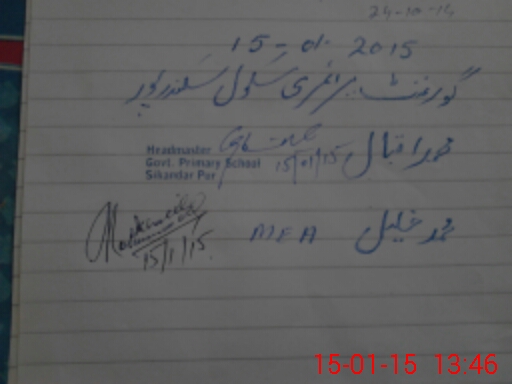 24-10-14
15-01-2015
گورنمنٹ پرائمری سکول سکندرپور
محمد اقبال
15/01/15
Headmaster
Govt. Primary School
Sikandar Pur
محمد خلیل MEA
15/1/15.
15-01-15 13:46